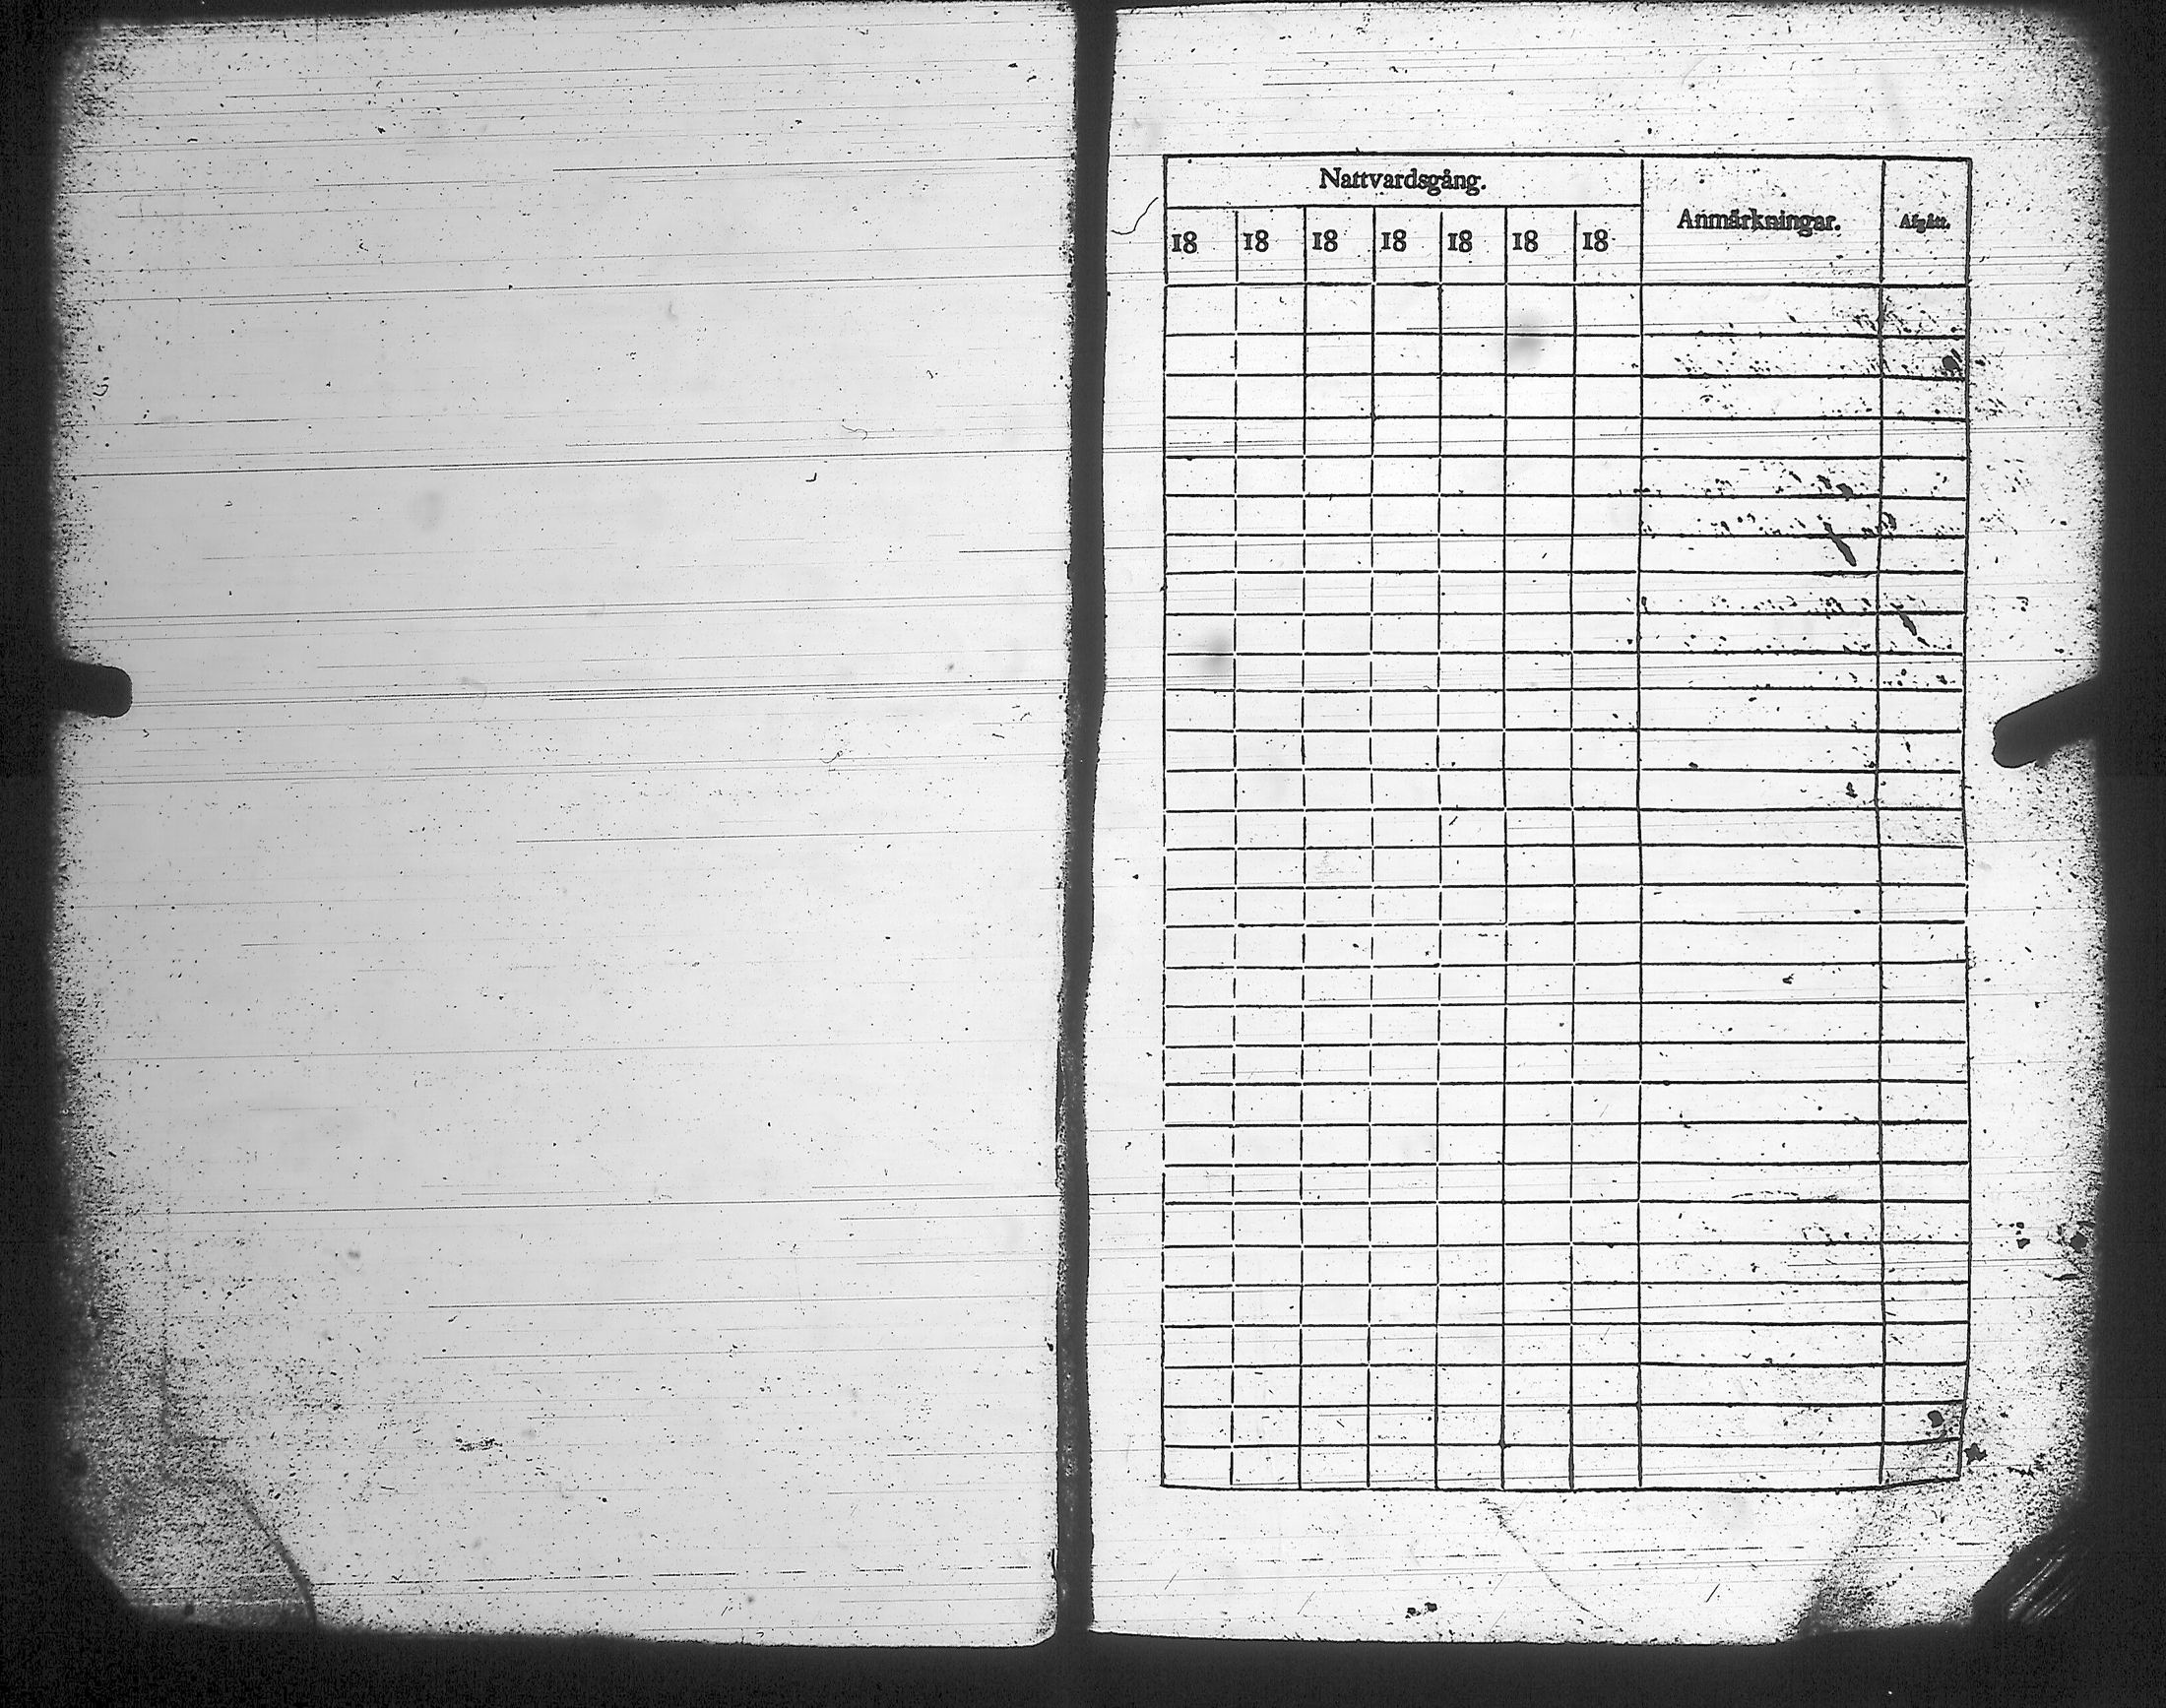 Nattvardsgång.
18 18 18 18 18 18 18 Anmärkningar. Afgått.